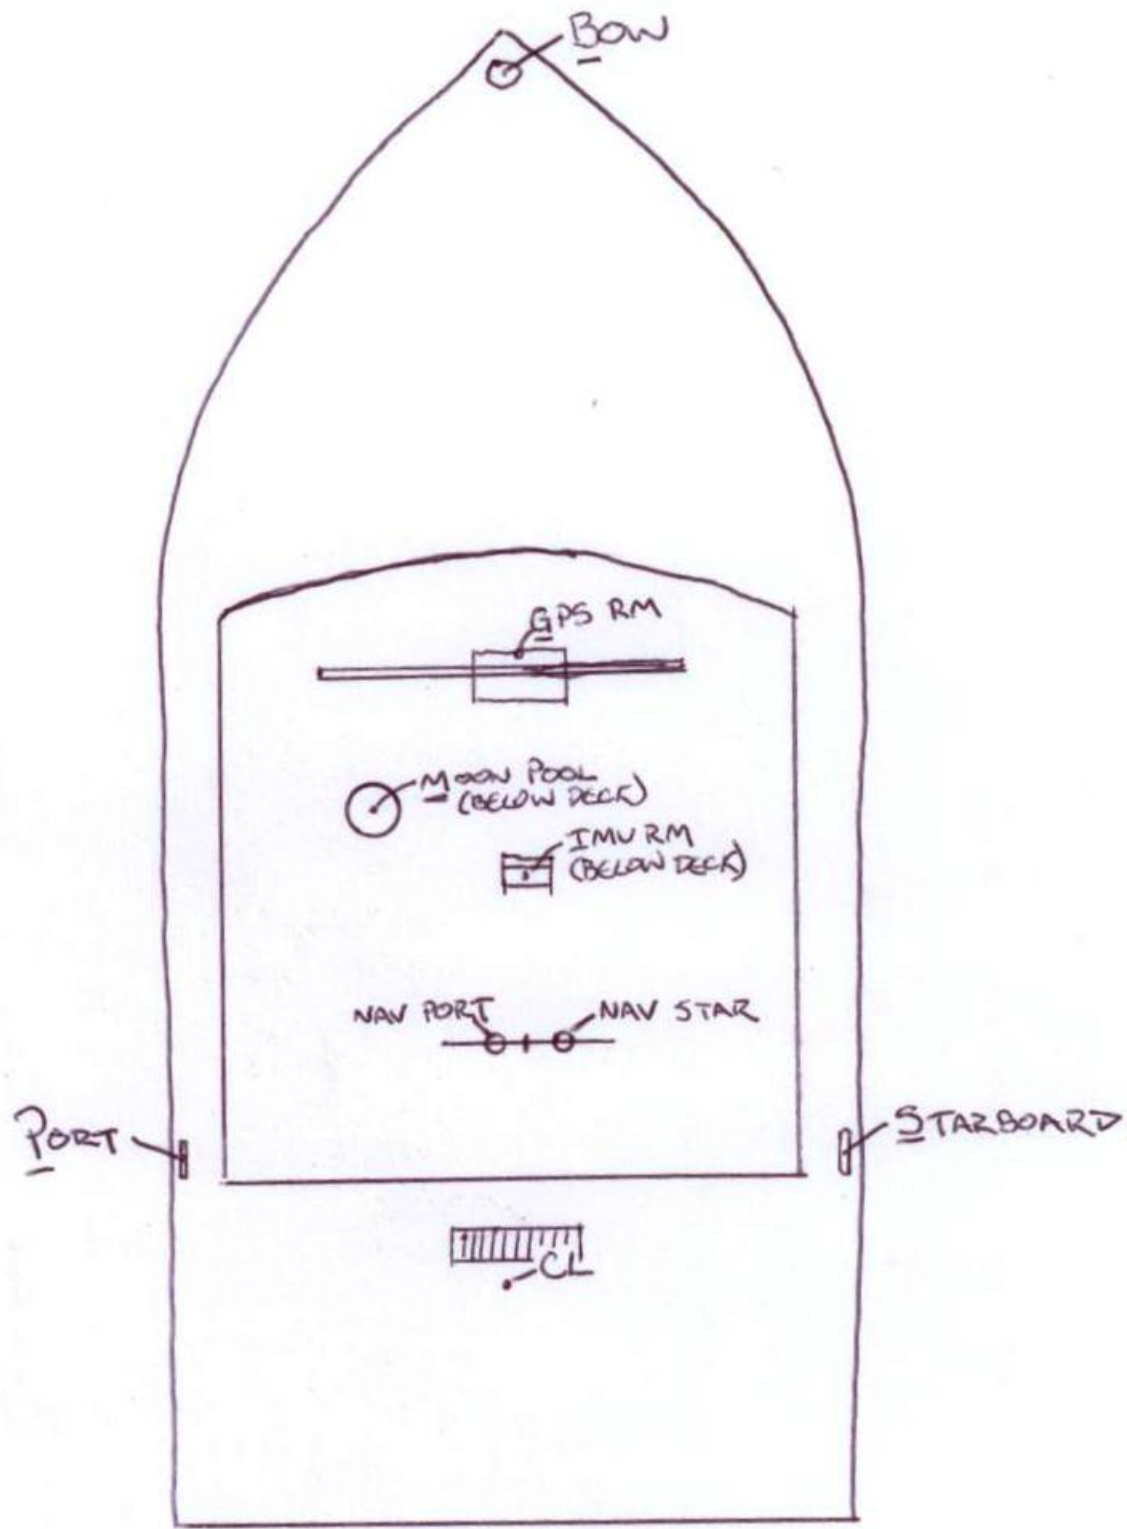 BOW
GPS RM
MOON POOL
(BELOW DECK)
IMU RM
(BELOW DECK)
NAV PORT
NAV STAR
PORT
STARBOARD
CL